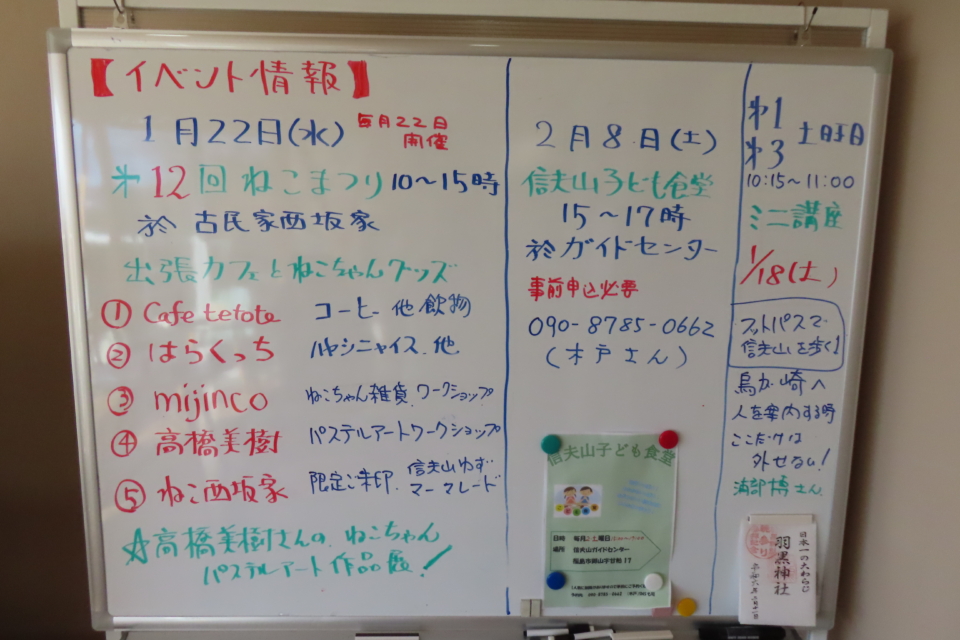 【イベント情報】
1月22日(水) 毎月22日
開催
㐧12回 ねこまつり 10～15時
於 古民家西坂家
出張カフェとねこちゃんグッズ
① Cafe tetote コーヒー 他 飲物
② はらくっち ハヤシニャイス、他
③ mijinco ねこちゃん雑貨、ワークショップ
④ 高橋美樹 パステルアートワークショップ
⑤ ねこ西坂家 限定ご朱印、信夫山ゆず
マーマレード
☆高橋美樹さんの、ねこちゃん
パステルアート作品展!
2月8日(土)
信夫山子ども食堂
15～17時
於ガイドセンター
事前申込必要
090-8785-0662
(木戸さん)
㐧1
㐧3 土曜日
10:15～11:00
ミニ講座
1/18(土)
フットパスで
信夫山を歩く!
烏ヶ崎へ
人を案内する時
ここだけは
外せない!
浦部博さん
信夫山子ども食堂
日時 毎月 土曜日
場所 信夫山ガイドセンター
日本一の大わらじ
羽黒神社